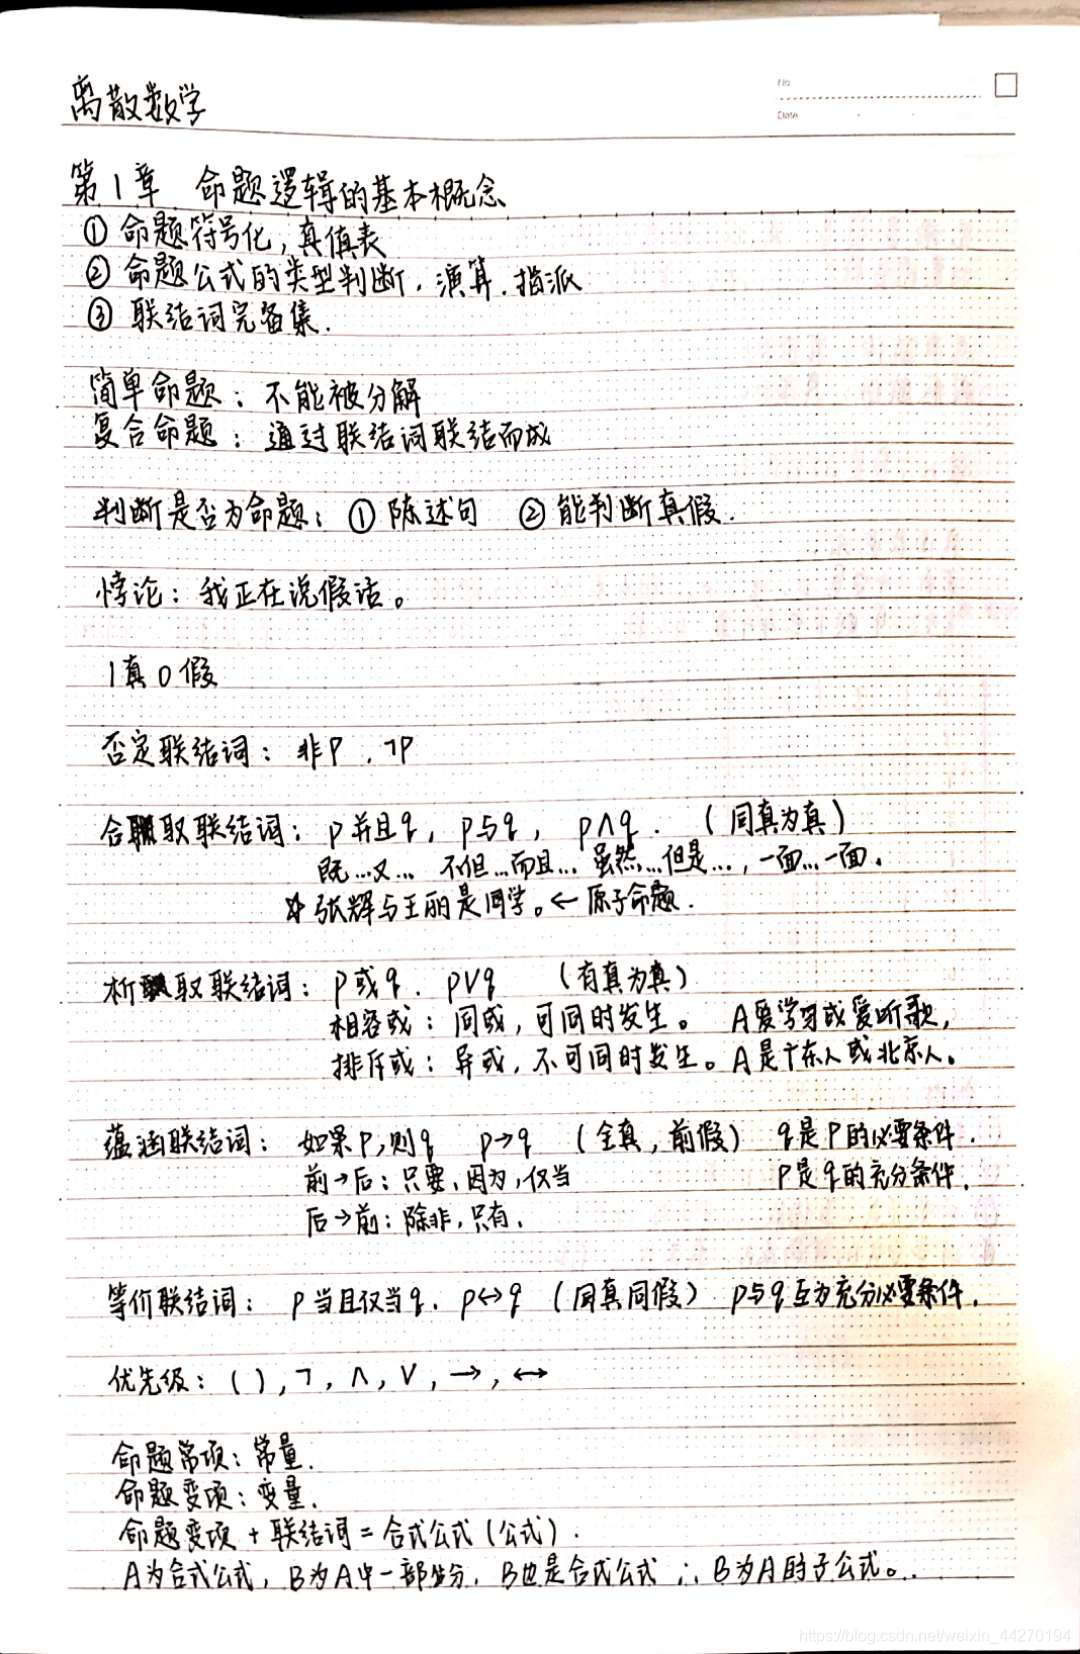 离散数学
No
Date
第1章 命题逻辑的基本概念
① 命题符号化,真值表
② 命题公式的类型判断,演算.指派
③ 联结词完备集.
简单命题:不能被分解
复合命题:通过联结词联结而成
判断是否为命题:① 陈述句 ② 能判断真假.
悖论:我正在说假话。
1真0假
否定联结词:非P ,¬P
合取联结词:p并且q,p与q,p∧q.(同真为真)
既...又... 不但...而且... 虽然...但是...,一面...一面.
☆张辉与王丽是同学。← 原子命题.
析取联结词:p或q. p∨q (有真为真)
相容或:同或,可同时发生。 A爱学习或爱听歌,
排斥或:异或,不可同时发生。A是广东人或北京人。
蕴涵联结词:如果P,则q p→q (全真,前假) q是P的必要条件.
前→后:只要,因为,仅当 P是q的充分条件.
后→前:除非,只有.
等价联结词:p当且仅当q. p↔q (同真同假) p与q互为充分必要条件.
优先级:( ),¬,∧,∨,→,↔
命题常项:常量.
命题变项:变量.
命题变项 + 联结词 = 合式公式(公式).
A为合式公式,B为A中一部分,B也是合式公式 ∴B为A的子公式。
https://blog.csdn.net/weixin_44270194